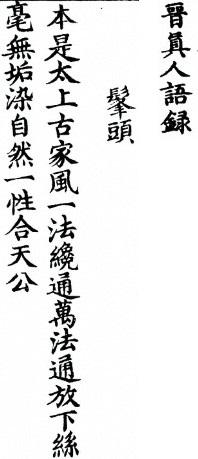 晉眞人語録
髼頭
本是太上古家風一法纔通萬法通放下絲
毫無垢染自然一性合天公